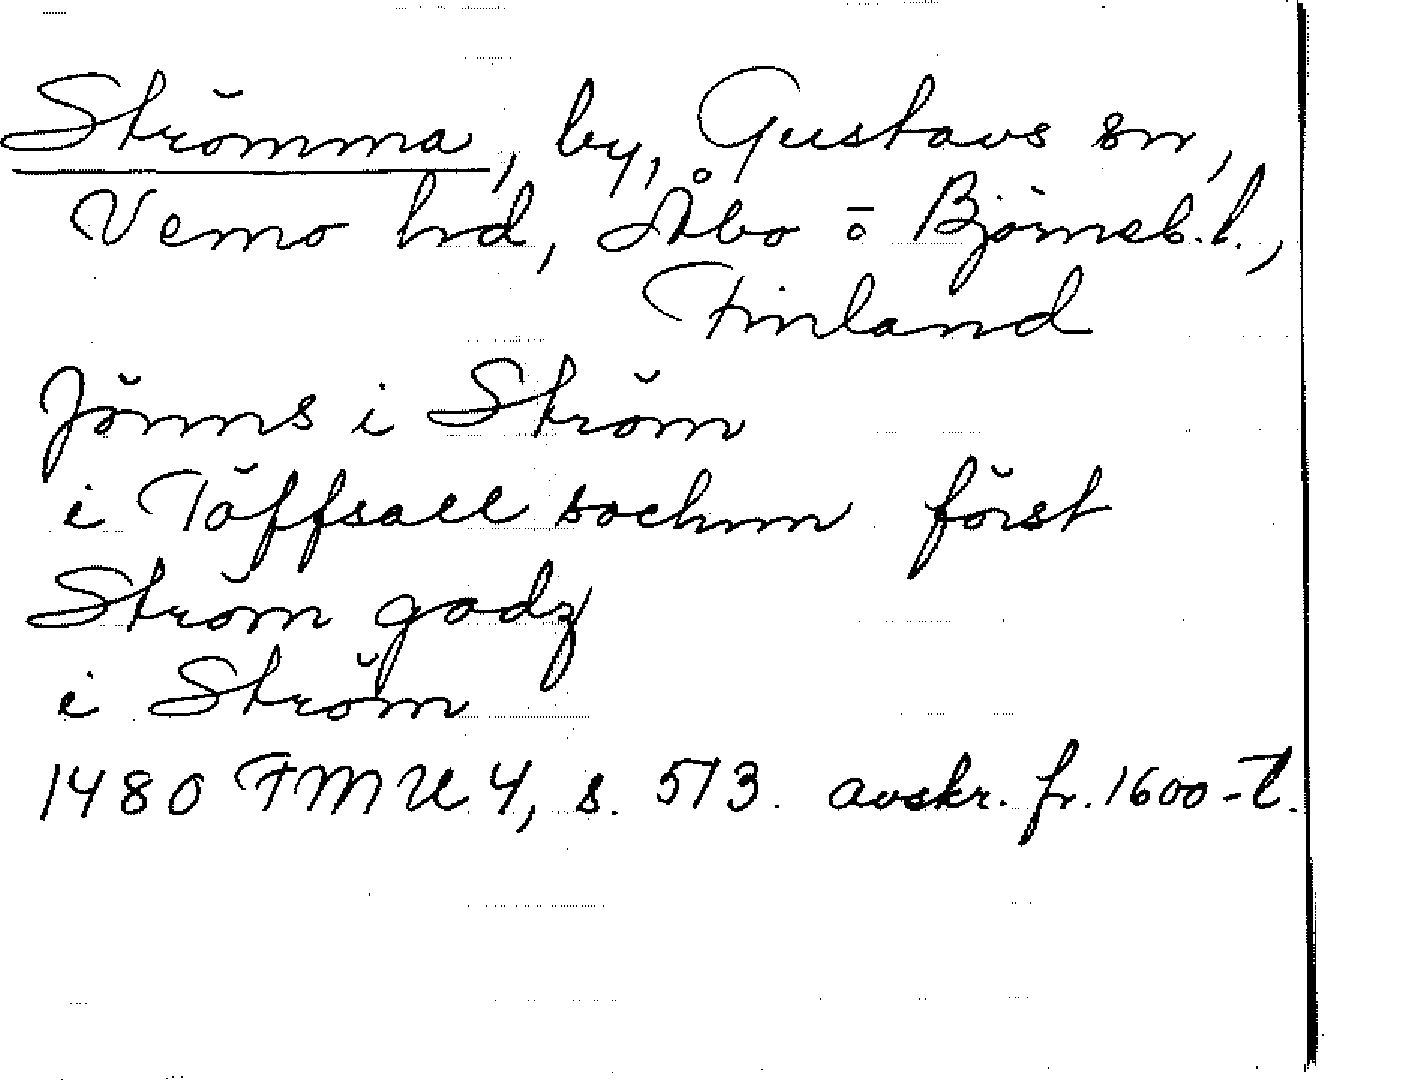 Strömma, by, Gustavs sn,
Vemo hrd, Åbo o Björneb.l.,
Finland
Jönns i Ström
i Töffsall sochnn först
Ström godz
i Ström
1480 FMU 4, s. 513. avskr. fr. 1600-t.